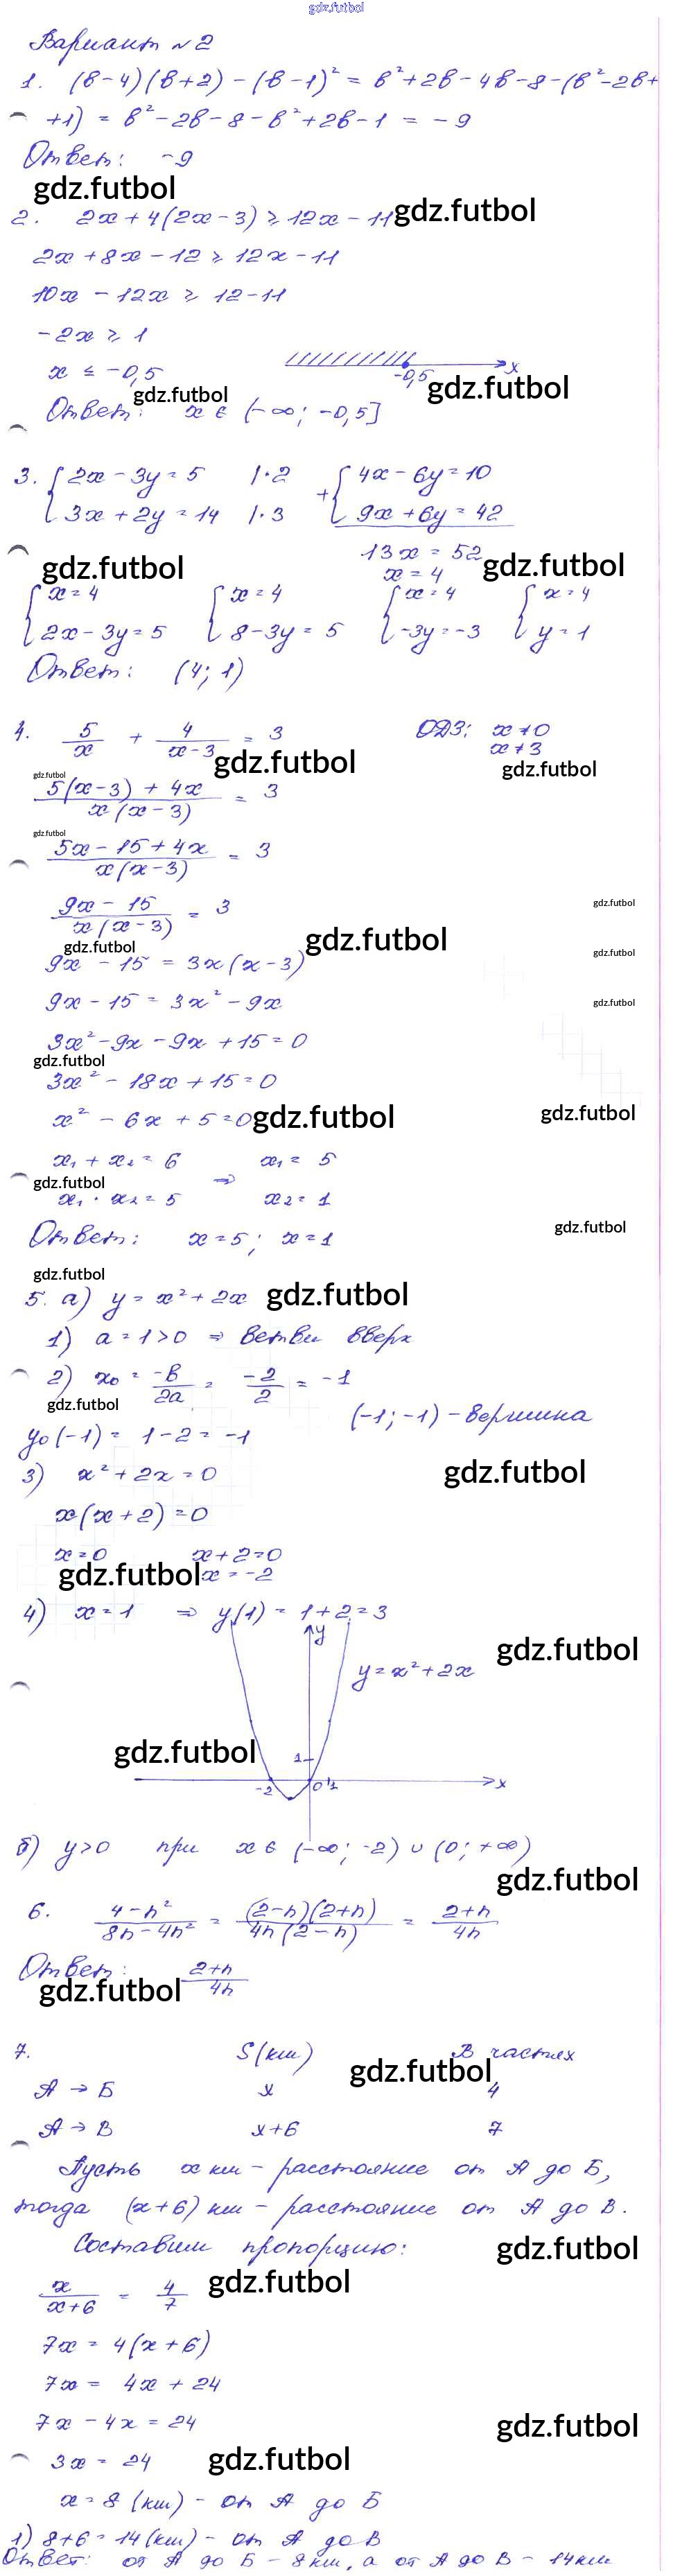 gdz.futbol
Вариант №2
1. (b-4)(b+2) - (b-1)² = b²+2b-4b-8-(b²-2b+
+1) = b²-2b-8-b²+2b-1 = -9
Ответ: -9
gdz.futbol
2. 2x+4(2x-3) ≥ 12x-11 gdz.futbol
2x+8x-12 ≥ 12x-11
10x - 12x ≥ 12-11
-2x ≥ 1
x ≤ -0,5 -0,5 x
gdz.futbol gdz.futbol
Ответ: x ∈ (-∞; -0,5]
3. { 2x-3y=5 |·2 + { 4x-6y=10
3x+2y=14 |·3 9x+6y=42
13x = 52
gdz.futbol x = 4 gdz.futbol
{ x=4 { x=4 { x=4 { x=4
2x-3y=5 8-3y=5 -3y=-3 y=1
Ответ: (4; 1)
4. 5/x + 4/(x-3) = 3 ОДЗ: x≠0
x≠3
gdz.futbol gdz.futbol
gdz.futbol
(5(x-3) + 4x)/(x(x-3)) = 3
gdz.futbol
(5x-15+4x)/(x(x-3)) = 3
(9x-15)/(x(x-3)) = 3 gdz.futbol
gdz.futbol gdz.futbol gdz.futbol
9x - 15 = 3x(x-3)
9x-15 = 3x²-9x gdz.futbol
3x²-9x-9x+15=0
gdz.futbol
3x²-18x+15=0
x²-6x+5=0 gdz.futbol gdz.futbol
x₁+x₂=6 ⇒ x₁=5
gdz.futbol
x₁·x₂=5 x₂=1
Ответ: x=5; x=1 gdz.futbol
gdz.futbol
5. а) y=x²+2x gdz.futbol
1) a=1>0 ⇒ ветви вверх
2) x₀ = -b/2a = -2/2 = -1
gdz.futbol (-1; -1) - вершина
y₀(-1) = 1-2 = -1
3) x²+2x=0 gdz.futbol
x(x+2)=0
x=0 x+2=0
gdz.futbol x=-2
4) x=1 ⇒ y(1)=1+2=3
y
gdz.futbol
y=x²+2x
gdz.futbol 1
-2 0 1 x
б) y>0 при x ∈ (-∞; -2) ∪ (0; +∞)
gdz.futbol
6. (4-n²)/(8n-4n²) = ((2-n)(2+n))/(4n(2-n)) = (2+n)/4n
Ответ: (2+n)/4n
gdz.futbol
7. S(км) В частях
gdz.futbol
А → Б x 4
А → В x+6 7
Пусть x км - расстояние от А до Б,
тогда (x+6) км - расстояние от А до В.
Составим пропорцию: gdz.futbol
x/(x+6) = 4/7 gdz.futbol
7x = 4(x+6)
7x = 4x + 24
7x - 4x = 24 gdz.futbol
3x = 24 gdz.futbol
x=8 (км) - от А до Б
1) 8+6=14(км) - от А до В
Ответ: от А до Б - 8 км, а от А до В - 14 км